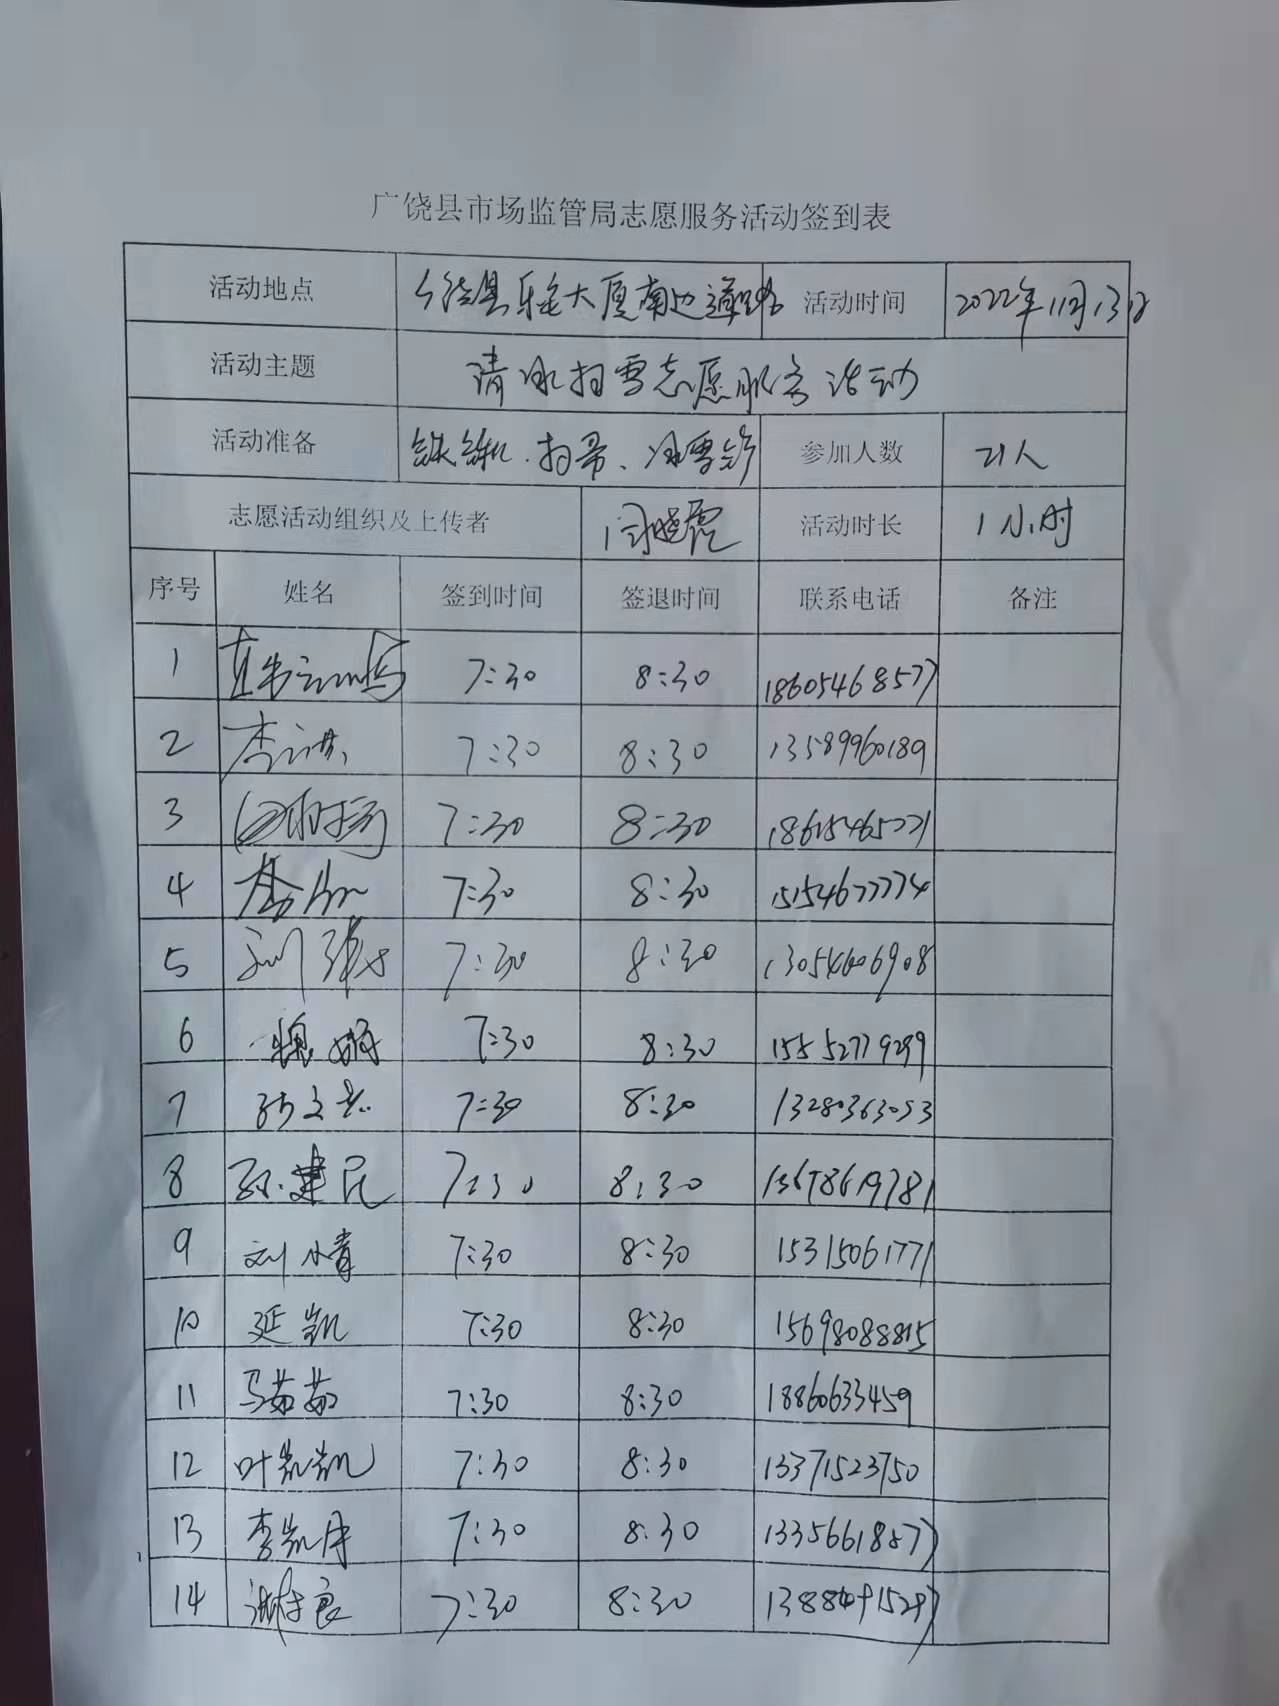 广饶县市场监管局志愿服务活动签到表
活动地点 广饶县乐安大厦南边道路 活动时间 2022年11月13日
活动主题 清冰扫雪志愿服务活动
活动准备 铁锨、扫帚、冰雪铲 参加人数 21人
志愿活动组织及上传者 闫晓霞 活动时长 1小时
序号 姓名 签到时间 签退时间 联系电话 备注
1 7:30 8:30 18605468577
2 7:30 8:30 13589960189
3 7:30 8:30
4 7:30 8:30 15154677774
5 刘 7:30 8:30 13054606908
6 魏娟 7:30 8:30 15552779299
7 7:30 8:30 13280363053
8 孙建民 7:30 8:30 13678619781
9 刘小青 7:30 8:30 15315061771
10 延凯 7:30 8:30 15698088815
11 马茹茹 7:30 8:30 18860633459
12 叶凯凯 7:30 8:30 13371523750
13 李凯月 7:30 8:30 13356618577
14 7:30 8:30